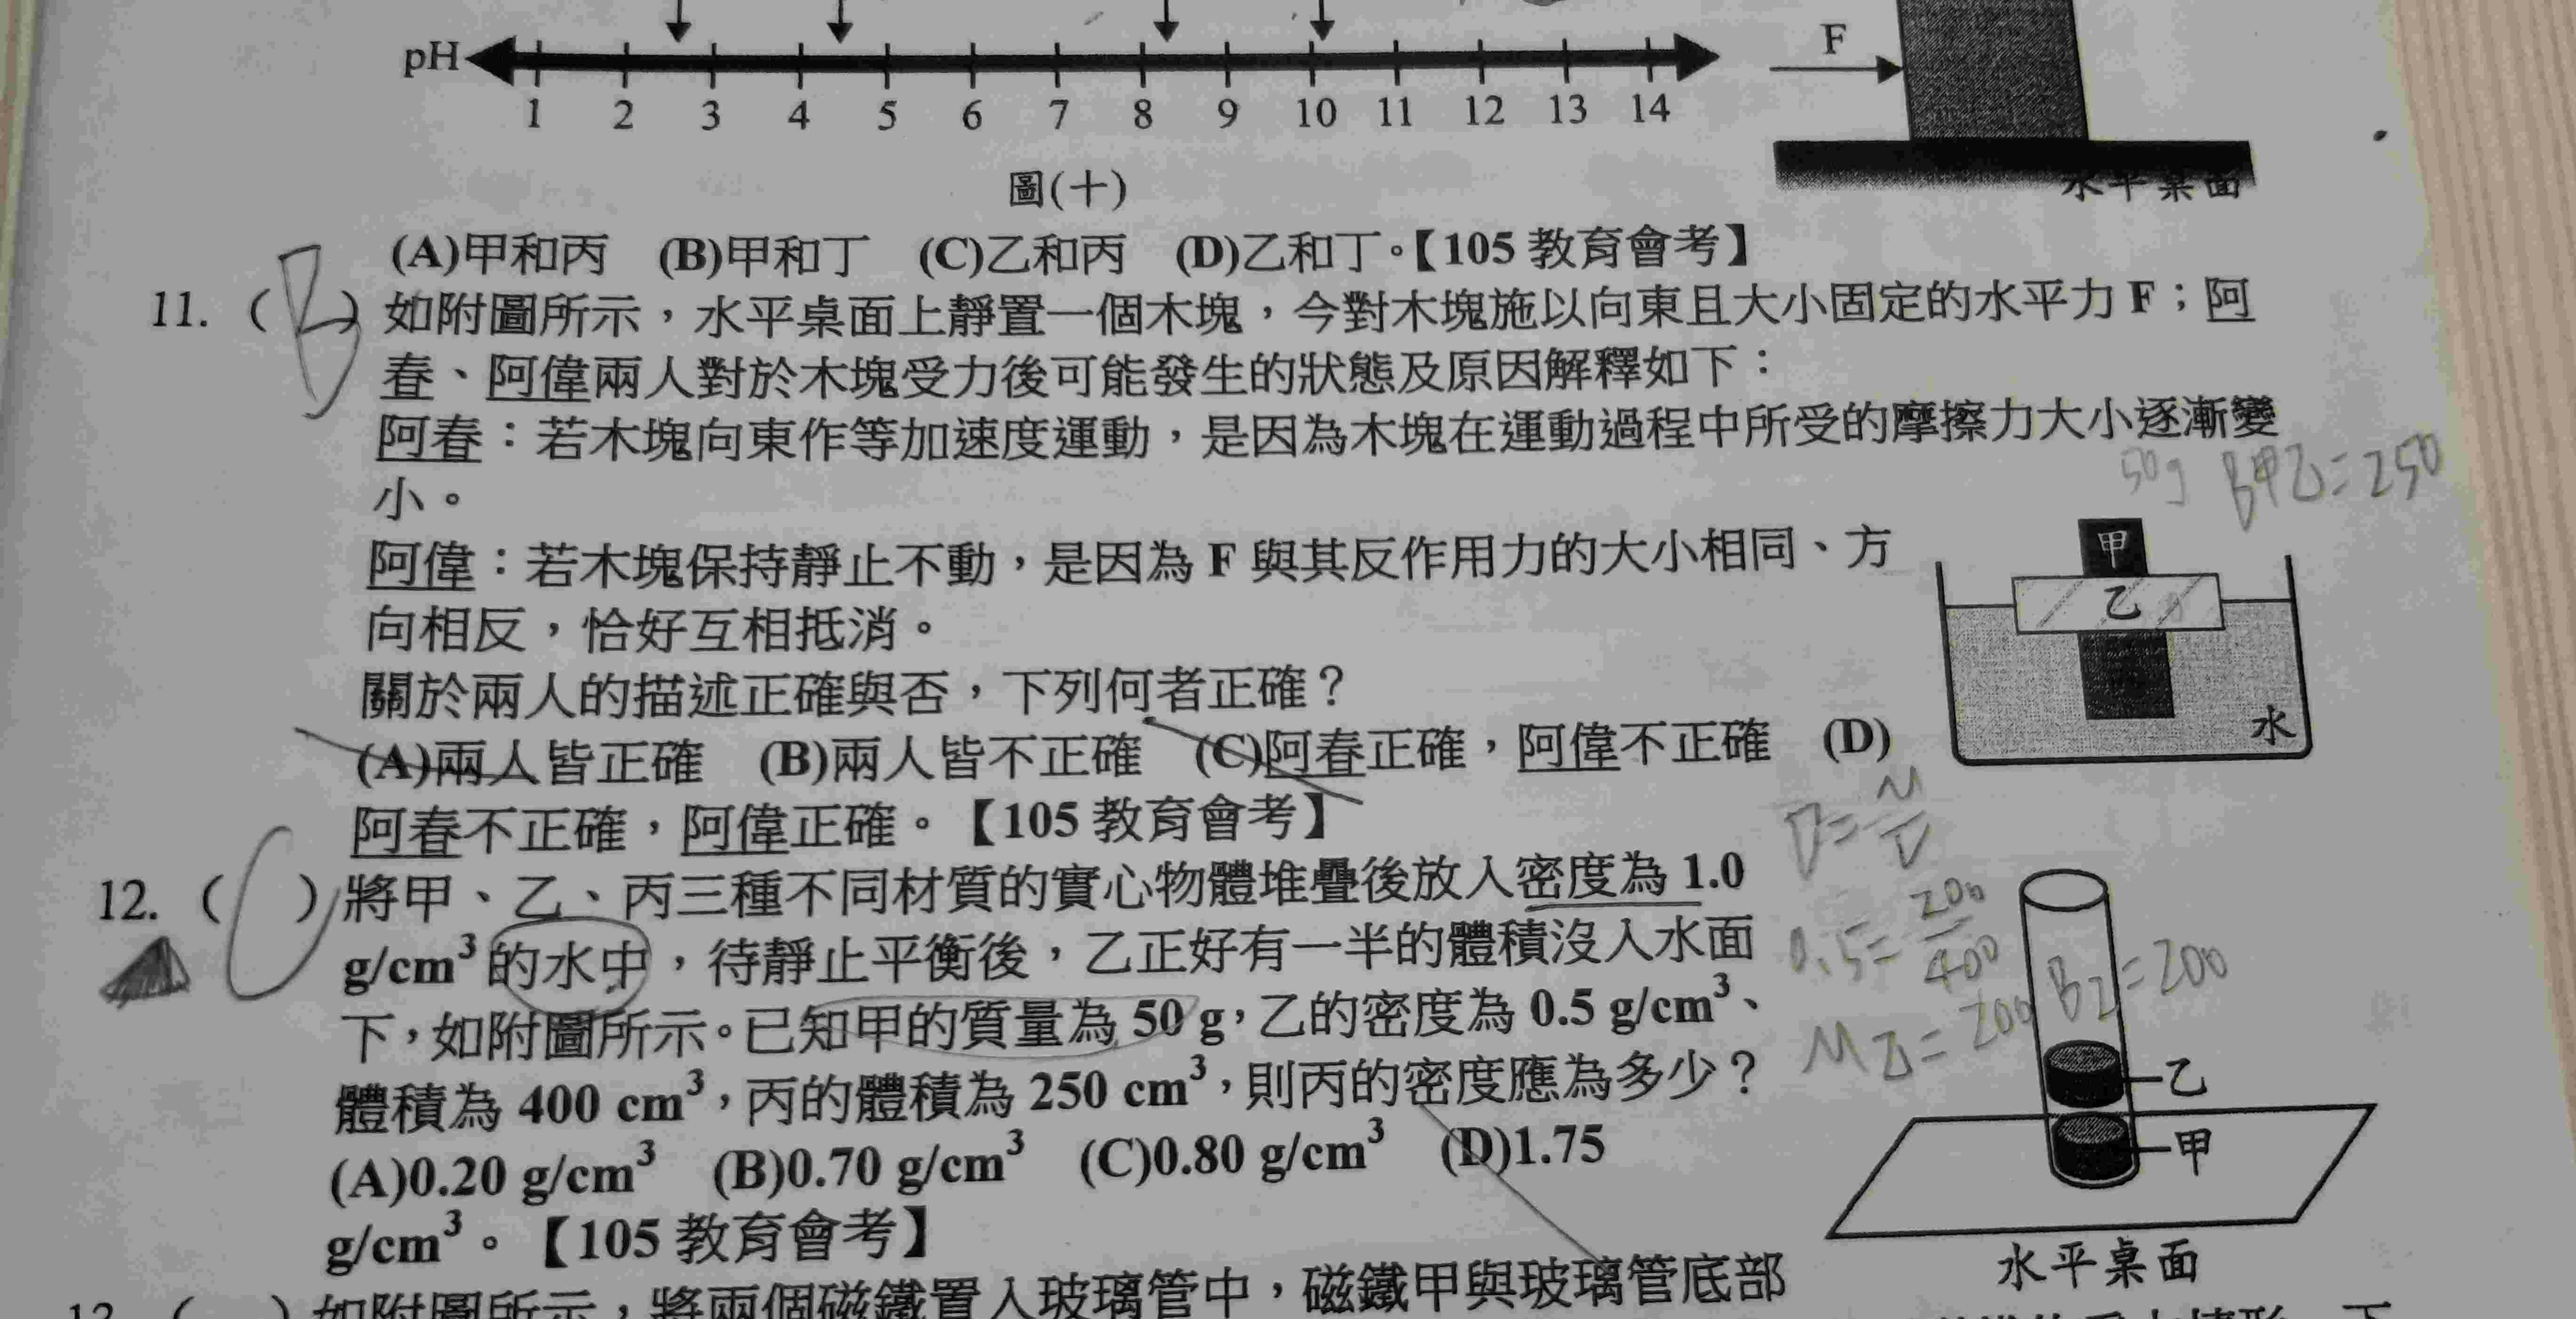 pH
1 2 3 4 5 6 7 8 9 10 11 12 13 14
F
水平桌面
圖(十)
(A)甲和丙 (B)甲和丁 (C)乙和丙 (D)乙和丁。【105 教育會考】
11. ( B ) 如附圖所示，水平桌面上靜置一個木塊，今對木塊施以向東且大小固定的水平力 F；阿
春、阿偉兩人對於木塊受力後可能發生的狀態及原因解釋如下：
阿春：若木塊向東作等加速度運動，是因為木塊在運動過程中所受的摩擦力大小逐漸變
小。
阿偉：若木塊保持靜止不動，是因為 F 與其反作用力的大小相同、方
向相反，恰好互相抵消。
關於兩人的描述正確與否，下列何者正確？
(A)兩人皆正確 (B)兩人皆不正確 (C)阿春正確，阿偉不正確 (D)
阿春不正確，阿偉正確。【105 教育會考】
50g B甲乙=250
甲
乙
水
12. ( C ) 將甲、乙、丙三種不同材質的實心物體堆疊後放入密度為 1.0
g/cm³ 的水中，待靜止平衡後，乙正好有一半的體積沒入水面
下，如附圖所示。已知甲的質量為 50 g，乙的密度為 0.5 g/cm³、
體積為 400 cm³，丙的體積為 250 cm³，則丙的密度應為多少？
(A)0.20 g/cm³ (B)0.70 g/cm³ (C)0.80 g/cm³ (D)1.75
g/cm³。【105 教育會考】
D=M/V
0.5=200/400
M乙=200 B乙=200
乙
甲
水平桌面
如附圖所示，將兩個磁鐵置入玻璃管中，磁鐵甲與玻璃管底部